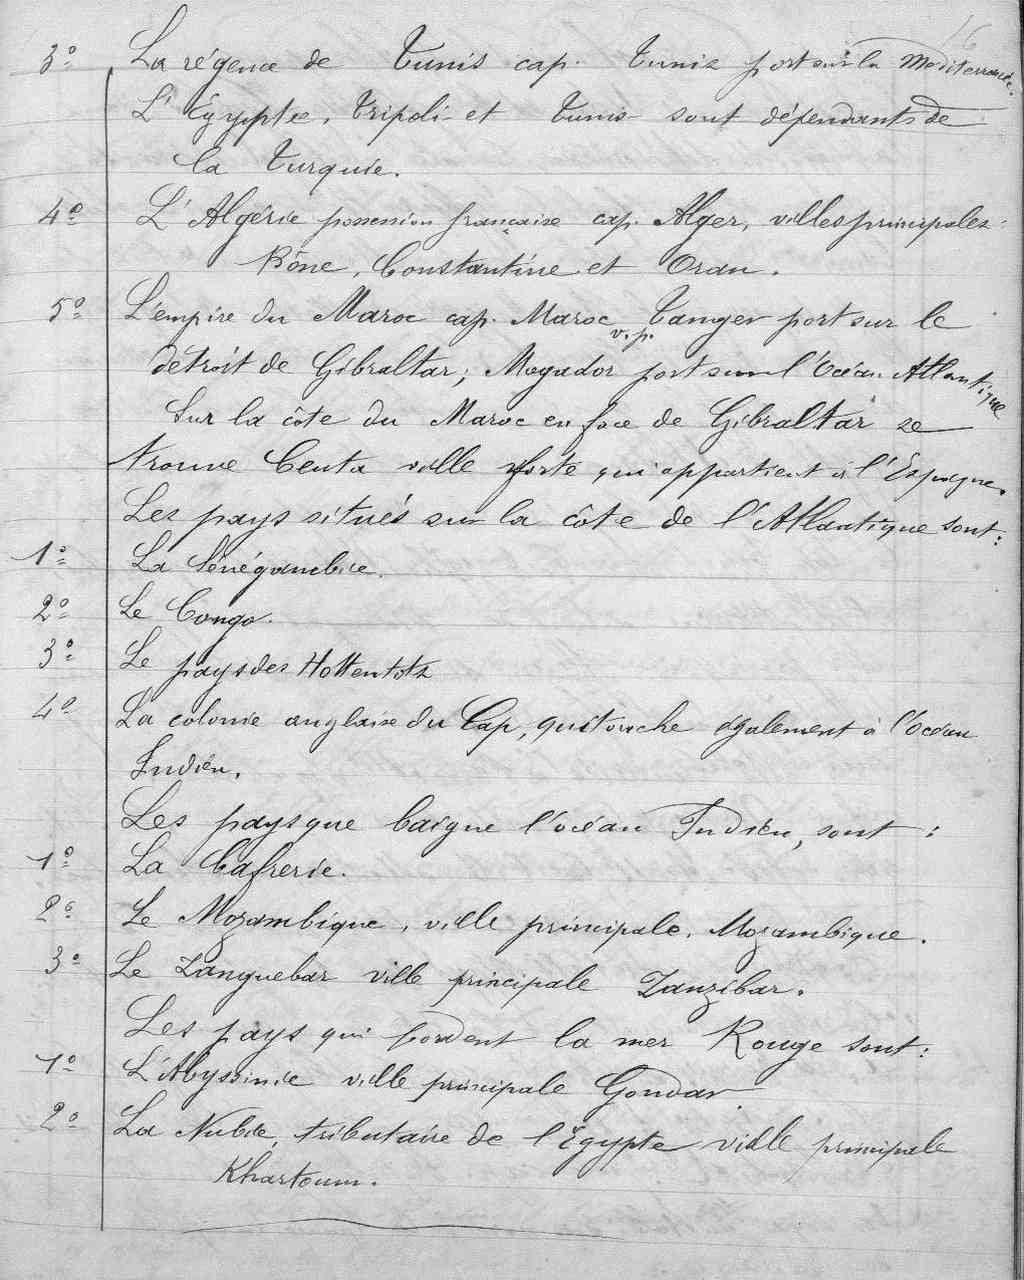 16
3º La régence de Tunis cap. Tunis port sur la Mediterranée.
L'Egypte, Tripoli et Tunis sont dépendants de
la Turquie.
4º L'Algérie possession française cap. Alger, villes principales:
Bône, Constantine et Oran.
5º L'empire du Maroc cap. Maroc v. p. Tanger port sur le
détroit de Gibraltar; Mogador port sur l'Océan Atlantique
Sur la côte du Maroc en face de Gibraltar se
trouve Ceuta ville forte qui appartient à l'Espagne.
Les pays situés sur la côte de l'Atlantique sont:
1º La Sénégambie.
2º Le Congo.
3º Le pays des Hottentots
4º La colonie anglaise du Cap, qui touche également à l'océan
Indien.
Les pays que baigne l'océan Indien, sont :
1º La Cafrerie.
2º Le Mozambique, ville principale, Mozambique.
3º Le Zanguebar ville principale Zanzibar.
Les pays qui bordent la mer Rouge sont:
1º L'Abyssinie ville principale Gondar
2º La Nubie, tributaire de l'Egypte ville principale
Khartoum.